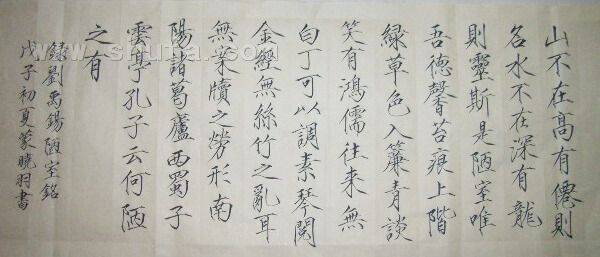 山不在高有僊則
名水不在深有龍
則靈斯是陋室唯
吾德馨苔痕上階
綠草色入簾青談
笑有鴻儒往来無
白丁可以調素琴閱
金經無絲竹之亂耳
無案牘之勞形南
陽諸葛廬西蜀子
雲亭孔子云何陋
之有
錄劉禹錫陋室銘
戊子初夏蒙曉羽書